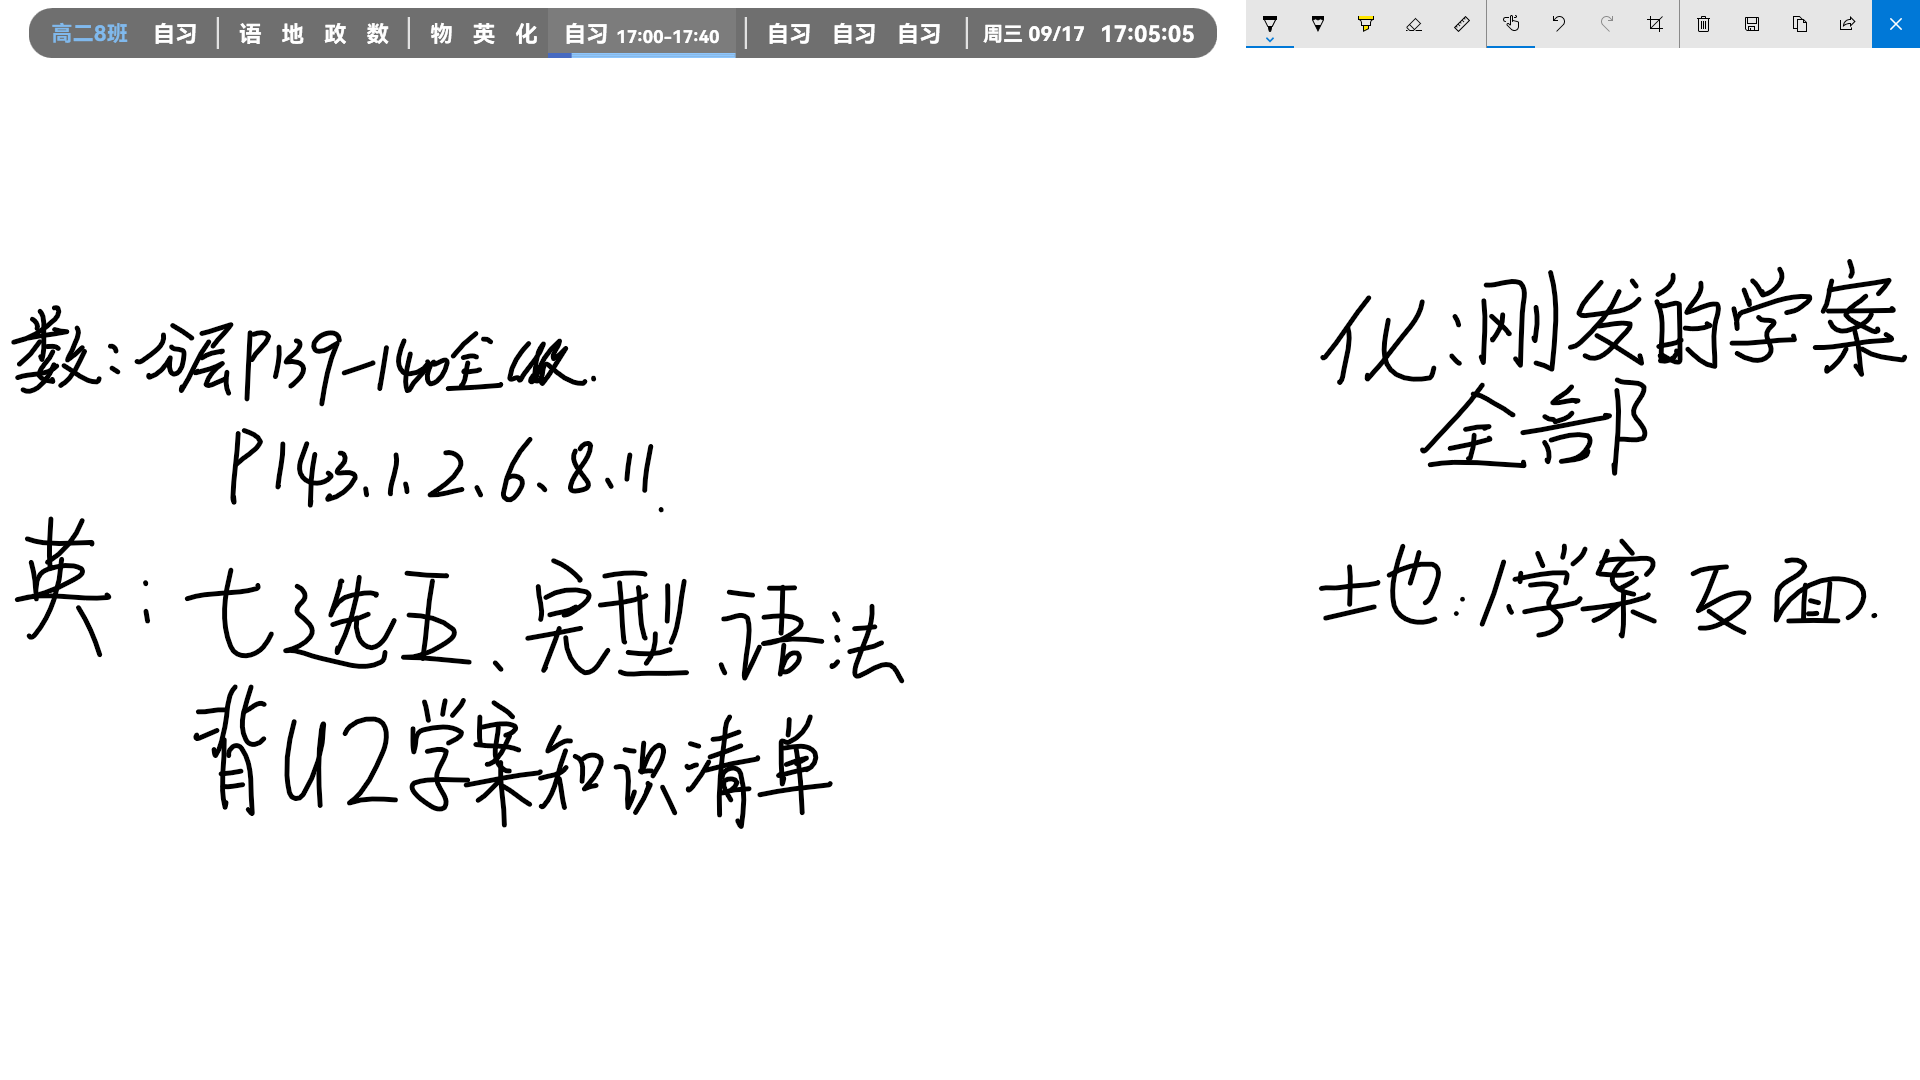 高二8班 自习 | 语 地 政 数 | 物 英 化 自习 17:00-17:40 | 自习 自习 自习 | 周三 09/17 17:05:05
数:分层P139-140全做.
P143.1、2、6、8、11.
英:七选五、完型、语法
背U2学案知识清单
化:刚发的学案
全部
地:1.学案反面.